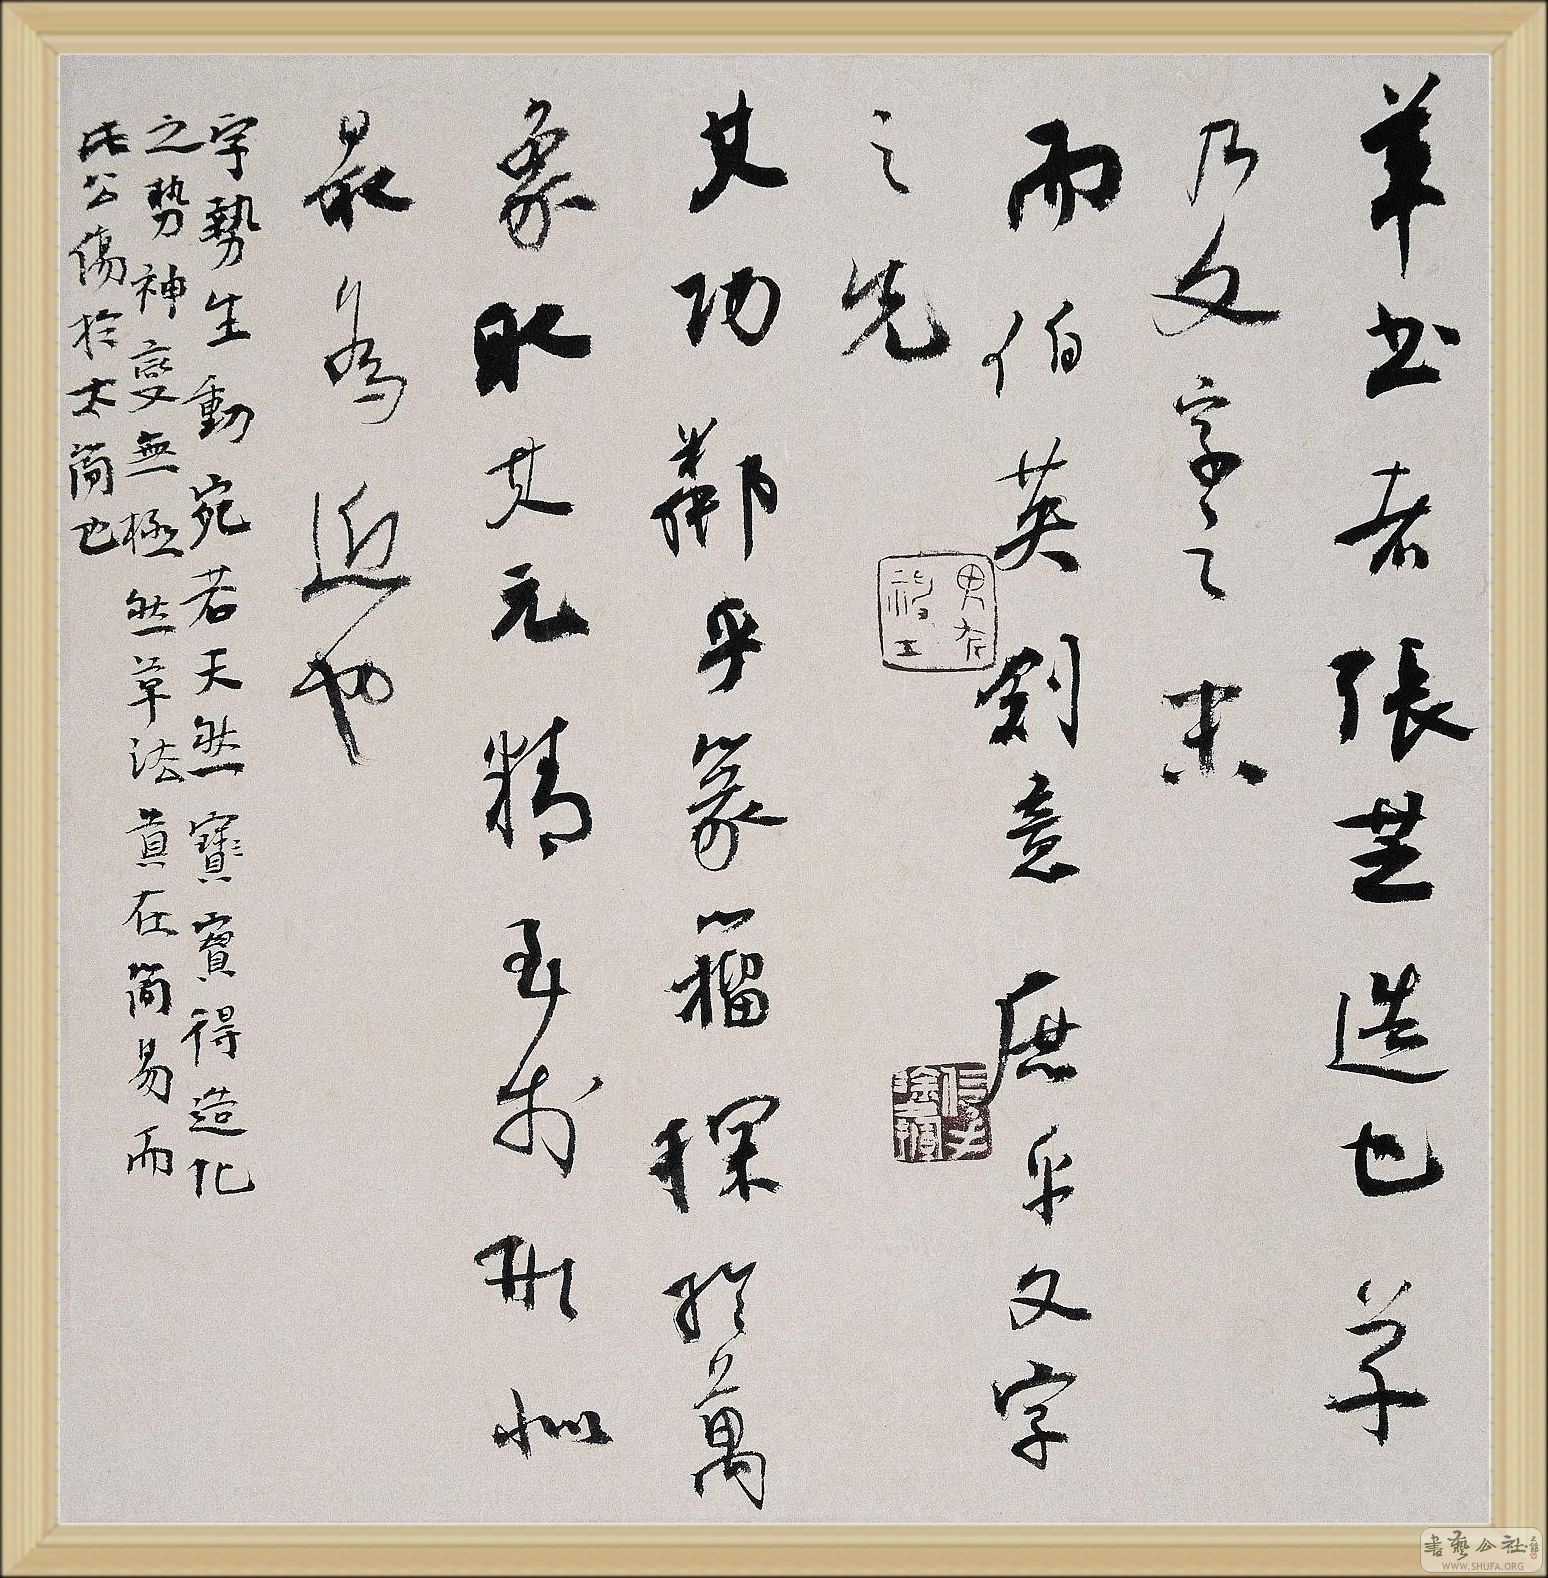 草書者張芝造也草
乃文字之末
而伯英創意庶乎文字
之先
其功鄰乎篆籀探於萬
象取其元精至於形似
最為近也
字勢生動宛若天然寶實得造化
之势神變無極然草法貴在簡易而
此公傷於太簡也
書藝公社
WWW.SHUFA.ORG